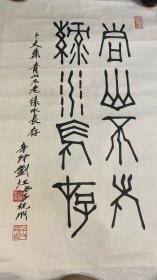 青山不老
綠水長存
卜文集 青山不老 綠水長存
劉江 杭州